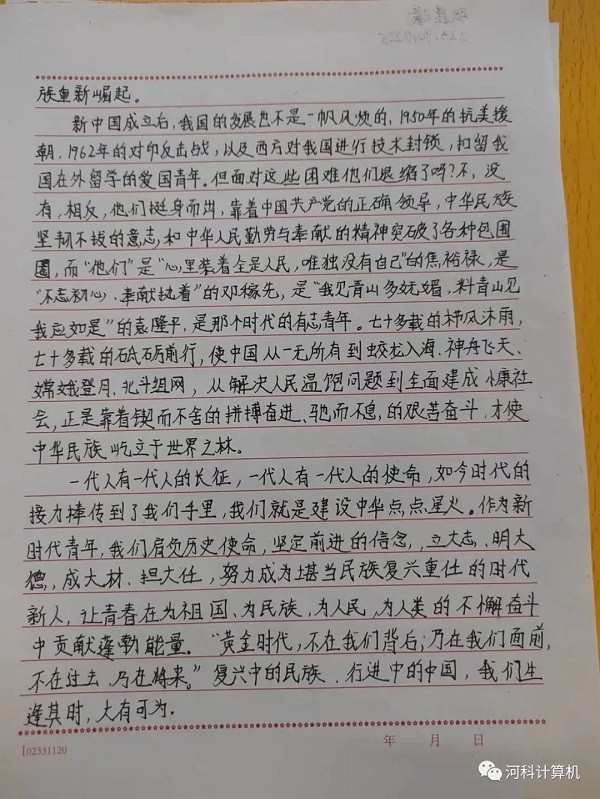 族重新崛起。
新中国成立后,我国的发展也不是一帆风顺的,1950年的抗美援
朝,1962年的对印反击战,以及西方对我国进行技术封锁,扣留我
国在外留学的爱国青年。但面对这些困难他们退缩了吗?不,没
有,相反,他们挺身而出,靠着中国共产党的正确领导,中华民族
坚韧不拔的意志,和中华人民勤劳与奉献的精神突破了各种包围
圈,而“他们”是“心里装着全是人民,唯独没有自己”的焦裕禄,是
“不忘初心、奉献执着”的邓稼先,是“我见青山多妩媚,料青山见
我应如是”的袁隆平,是那个时代的有志青年。七十多载的栉风沐雨,
七十多载的砥砺前行,使中国从一无所有到蛟龙入海、神舟飞天、
嫦娥登月、北斗组网,从解决人民温饱问题到全面建成小康社
会,正是靠着锲而不舍的拼搏奋进、驰而不息的艰苦奋斗,才使
中华民族屹立于世界之林。
一代人有一代人的长征,一代人有一代人的使命,如今时代的
接力捧传到了我们手里,我们就是建设中华点点星火。作为新
时代青年,我们肩负历史使命,坚定前进的信念,立大志、明大
德、成大材、担大任,努力成为堪当民族复兴重任的时代
新人,让青春在为祖国、为民族,为人民,为人类的不懈奋斗
中贡献蓬勃能量。“黄金时代,不在我们背后;乃在我们面前,
不在过去,乃在将来。”复兴中的民族,行进中的中国,我们生
逢其时,大有可为。
I02331120
年 月 日
河科计算机